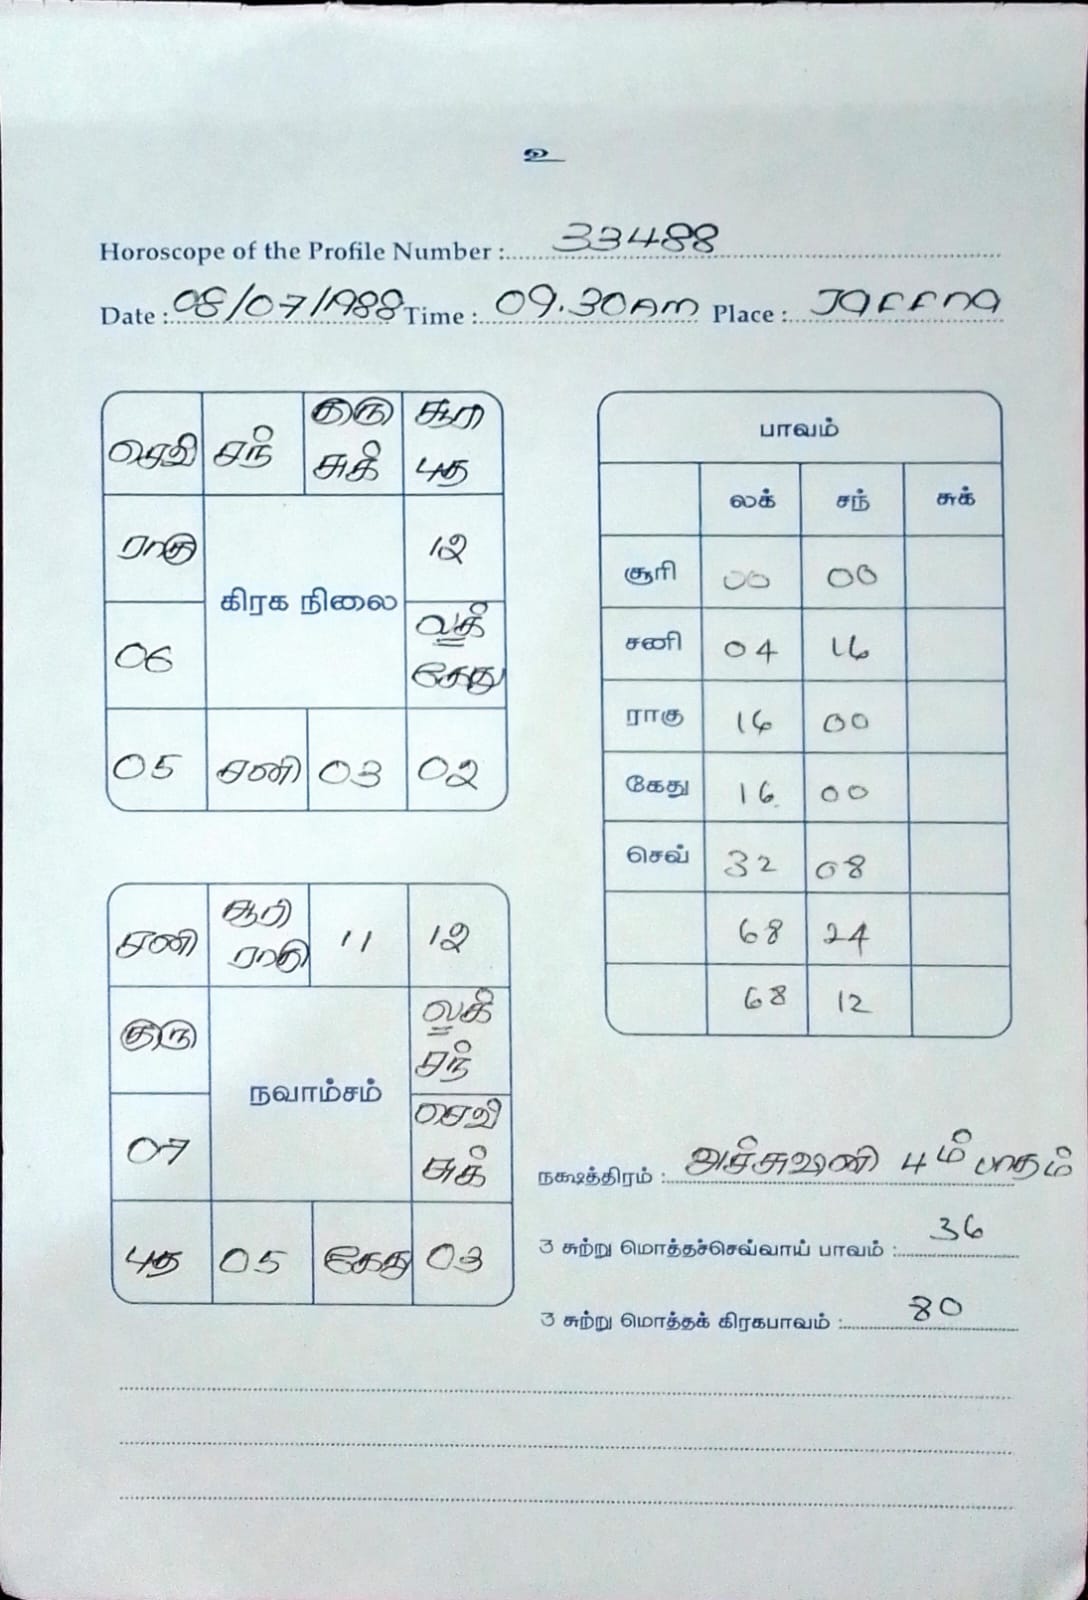 உ
Horoscope of the Profile Number : 33488
Date : 08/07/1988 Time : 09.30AM Place : Jaffna
செவி சந் குரு சூரி
சுகி புத
ராகு 12
கிரக நிலை
லக் கேது
06
05 சனி 03 02
பாவம்
லக் சந் சுக்
சூரி 00 00
சனி 04 16
ராகு 16 00
கேது 16 00
செவ் 32 08
68 24
68 12
சனி சூரி ராகு 11 12
குரு லக் சந்
நவாம்சம்
07 செவி சுக்
புத 05 கேது 03
நக்ஷத்திரம் : அச்சுவினி 4ம் பாதம்
3 சுற்று மொத்தச்செவ்வாய் பாவம் : 36
3 சுற்று மொத்தக் கிரகபாவம் : 80